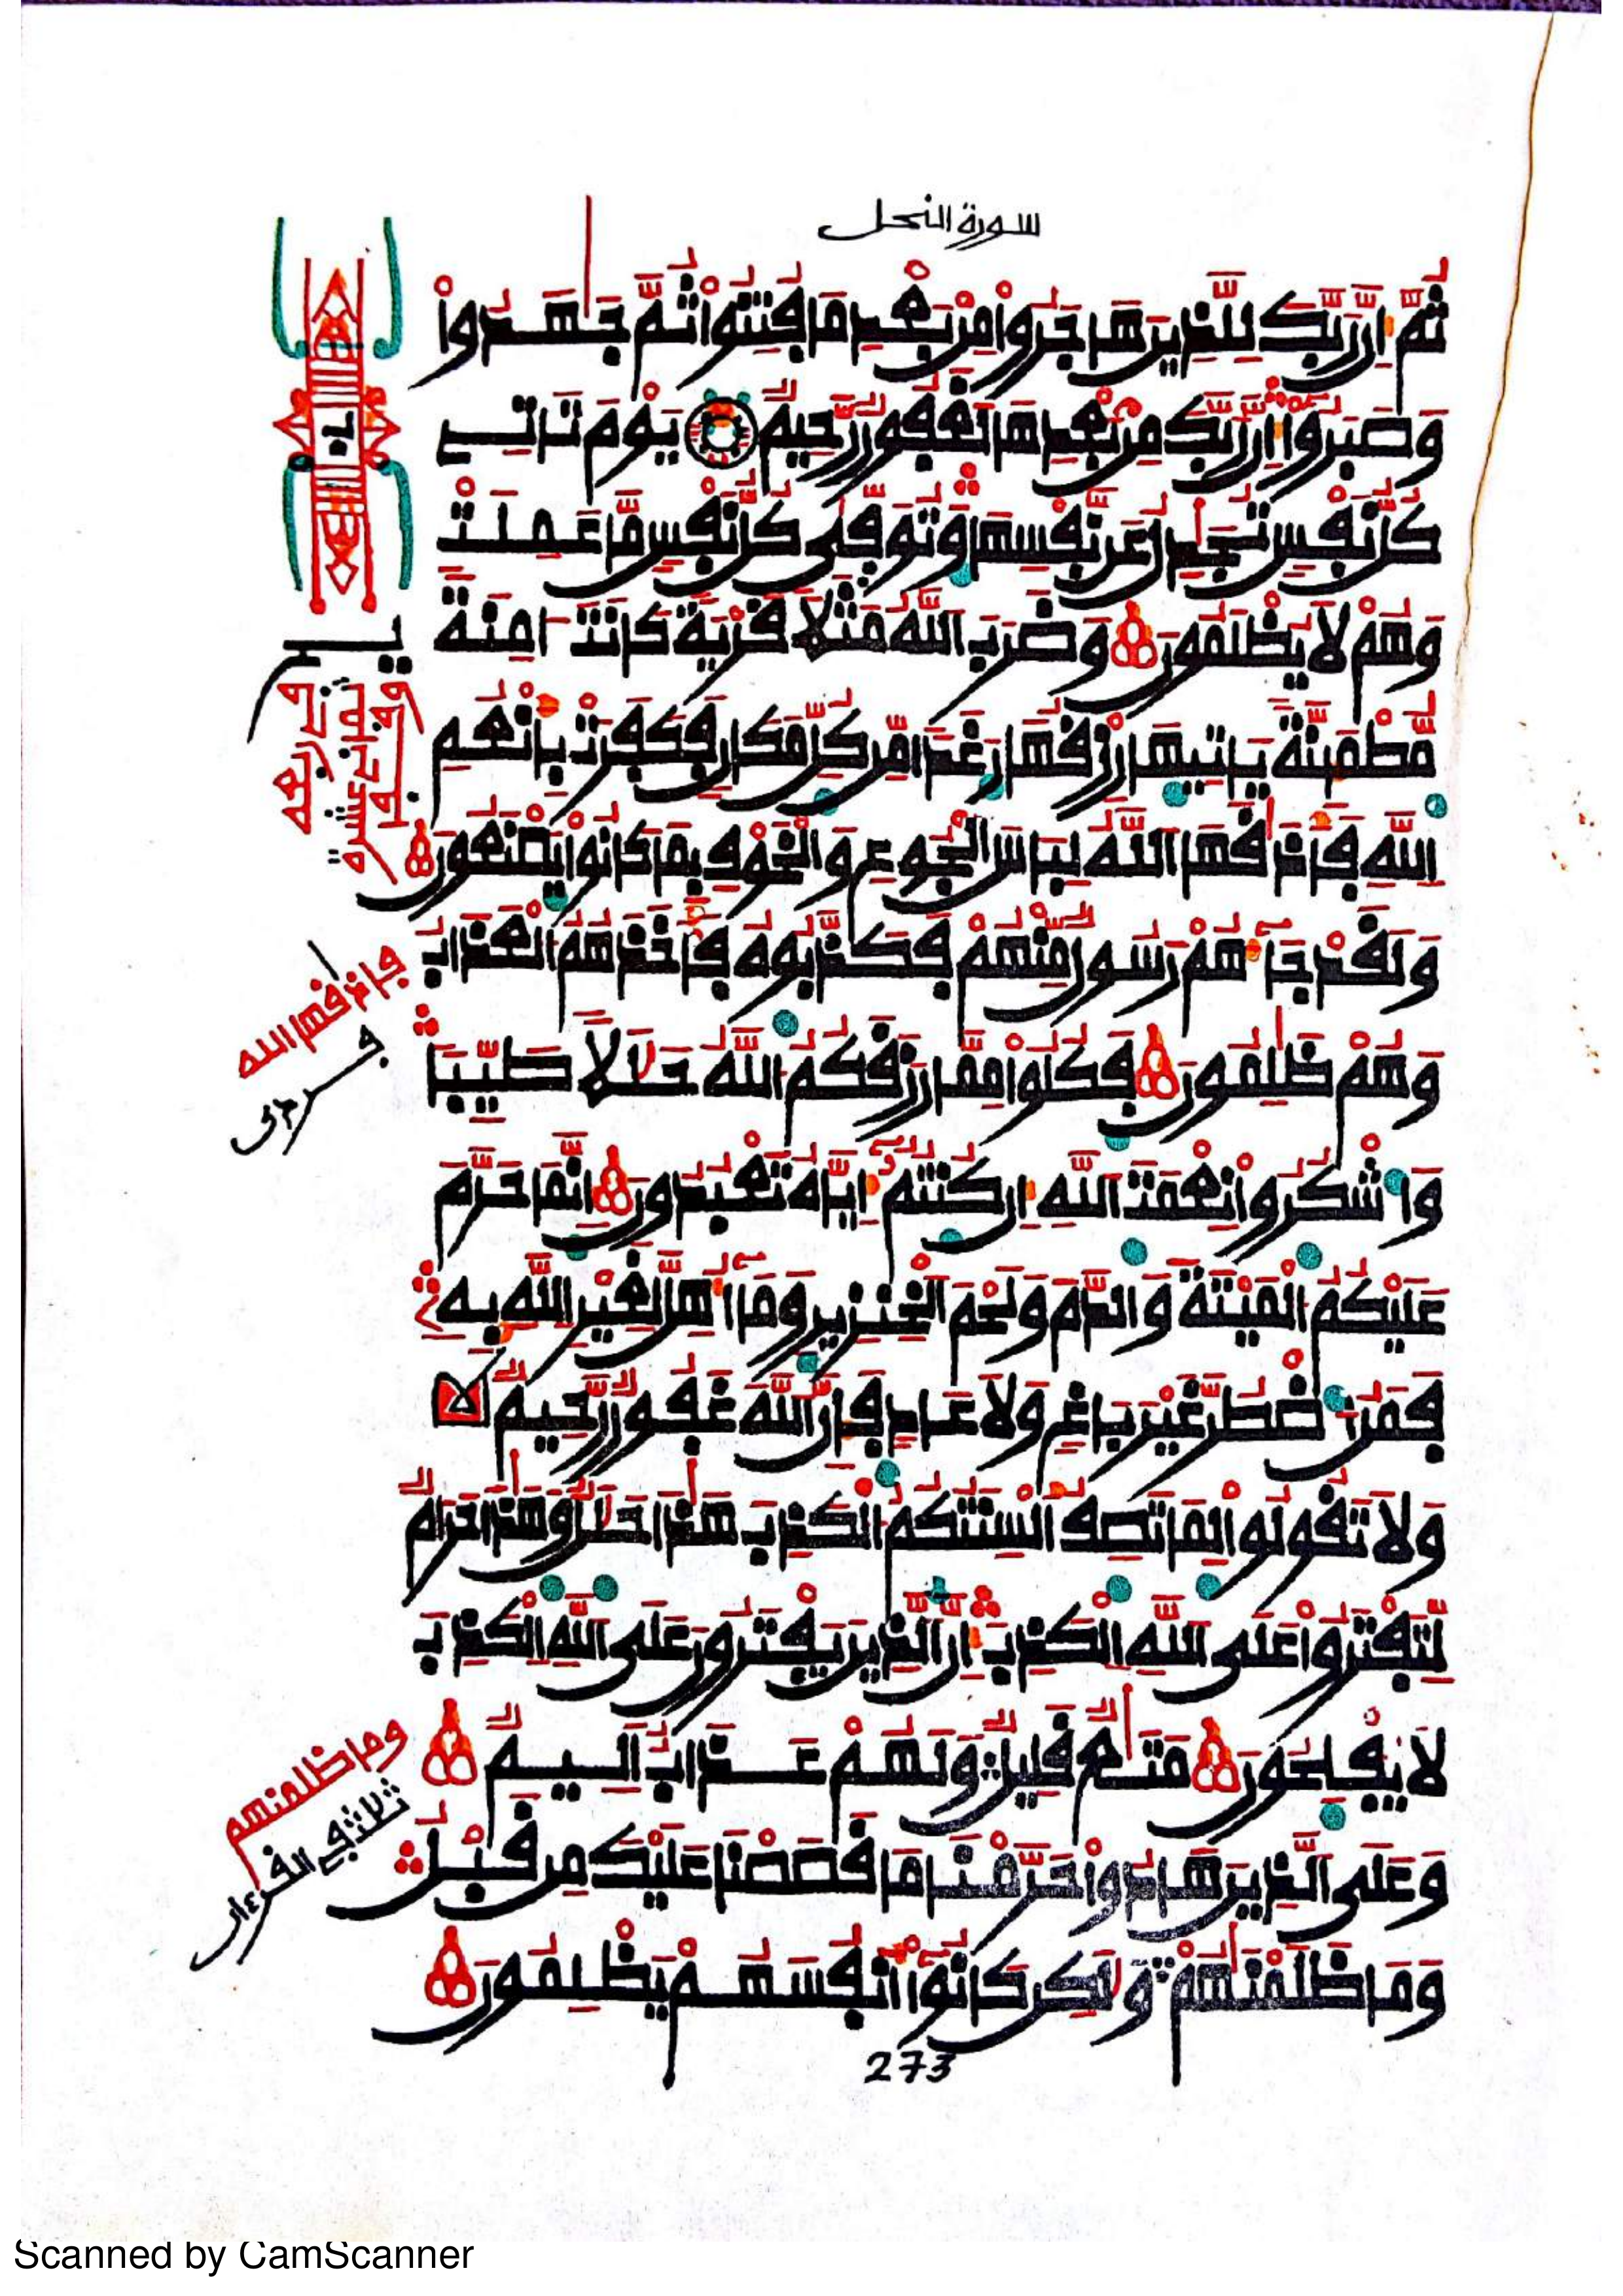 سورة النحل
ثُمَّ إِنَّ رَبَّكَ لِلَّذِينَ هَاجَرُوا مِنۢ بَعْدِ مَا فُتِنُوا ثُمَّ جَٰهَدُوا
وَصَبَرُوٓا إِنَّ رَبَّكَ مِنۢ بَعْدِهَا لَغَفُورٌ رَّحِيمٌ يَوْمَ تَأْتِي
كُلُّ نَفْسٍ تُجَٰدِلُ عَن نَّفْسِهَا وَتُوَفَّىٰ كُلُّ نَفْسٍ مَّا عَمِلَتْ
وَهُمْ لَا يُظْلَمُونَ وَضَرَبَ اللَّهُ مَثَلًا قَرْيَةً كَانَتْ ءَامِنَةً
مُّطْمَئِنَّةً يَأْتِيهَا رِزْقُهَا رَغَدًا مِّن كُلِّ مَكَانٍ فَكَفَرَتْ بِأَنْعُمِ
اللَّهِ فَأَذَٰقَهَا اللَّهُ لِبَاسَ الْجُوعِ وَالْخَوْفِ بِمَا كَانُوا يَصْنَعُونَ
وَلَقَدْ جَآءَهُمْ رَسُولٌ مِّنْهُمْ فَكَذَّبُوهُ فَأَخَذَهُمُ الْعَذَابُ
وَهُمْ ظَٰلِمُونَ فَكُلُوا مِمَّا رَزَقَكُمُ اللَّهُ حَلَٰلًا طَيِّبًا
وَاشْكُرُوا نِعْمَتَ اللَّهِ إِن كُنتُمُۥٓ إِيَّاهُ تَعْبُدُونَ إِنَّمَا حَرَّمَ
عَلَيْكُمُ الْمَيْتَةَ وَالدَّمَ وَلَحْمَ الْخِنزِيرِ وَمَآ أُهِلَّ لِغَيْرِ اللَّهِ بِهِۦ
فَمَنُ اضْطُرَّ غَيْرَ بَاغٍ وَلَا عَادٍ فَإِنَّ اللَّهَ غَفُورٌ رَّحِيمٌ
وَلَا تَقُولُوا لِمَا تَصِفُ أَلْسِنَتُكُمُ الْكَذِبَ هَٰذَا حَلَٰلٌ وَهَٰذَا حَرَامٌ
لِّتَفْتَرُوا عَلَى اللَّهِ الْكَذِبَ إِنَّ الَّذِينَ يَفْتَرُونَ عَلَى اللَّهِ الْكَذِبَ
لَا يُفْلِحُونَ مَتَٰعٌ قَلِيلٌ وَلَهُمْ عَذَابٌ أَلِيمٌ
وَعَلَى الَّذِينَ هَادُوا حَرَّمْنَا مَا قَصَصْنَا عَلَيْكَ مِن قَبْلُ
وَمَا ظَلَمْنَٰهُمْ وَلَٰكِن كَانُوٓا أَنفُسَهُمْ يَظْلِمُونَ
فأذاقها الله
وما ظلمنهم
ثلاث في القرءان
273
Scanned by CamScanner